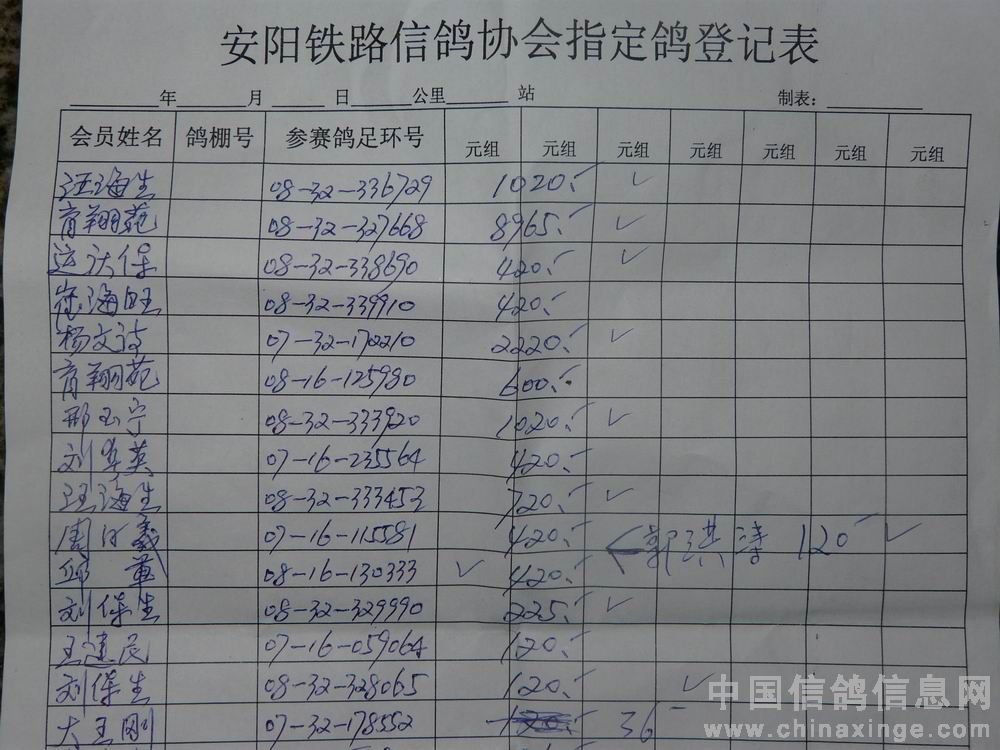 安阳铁路信鸽协会指定鸽登记表
年 月 日 公里 站 制表：
会员姓名 鸽棚号 参赛鸽足环号 元组 元组 元组 元组 元组 元组 元组
汪海生 08-32-336729 1020.- ✓
育翔苑 08-32-327668 8965.- ✓
运达保 08-32-338690 420.- ✓
海旺 08-32-339910 420.-
杨文诗 07-32-170210 2220.- ✓
育翔苑 08-16-125980 600.-
邢玉宁 08-32-333920 1020.- ✓
刘 英 07-16-235564 420.-
汪海生 08-32-333453 720.- ✓
周 义 07-16-115581 420.- ← 郭洪涛 120- ✓
08-16-130333 ✓ 420.-
刘保生 08-32-329990 225.- ✓
王建民 07-16-059064 120.-
刘保生 08-32-328065 120.- ✓
大王刚 07-32-178552 36-
中国信鸽信息网
www.chinaxinge.com